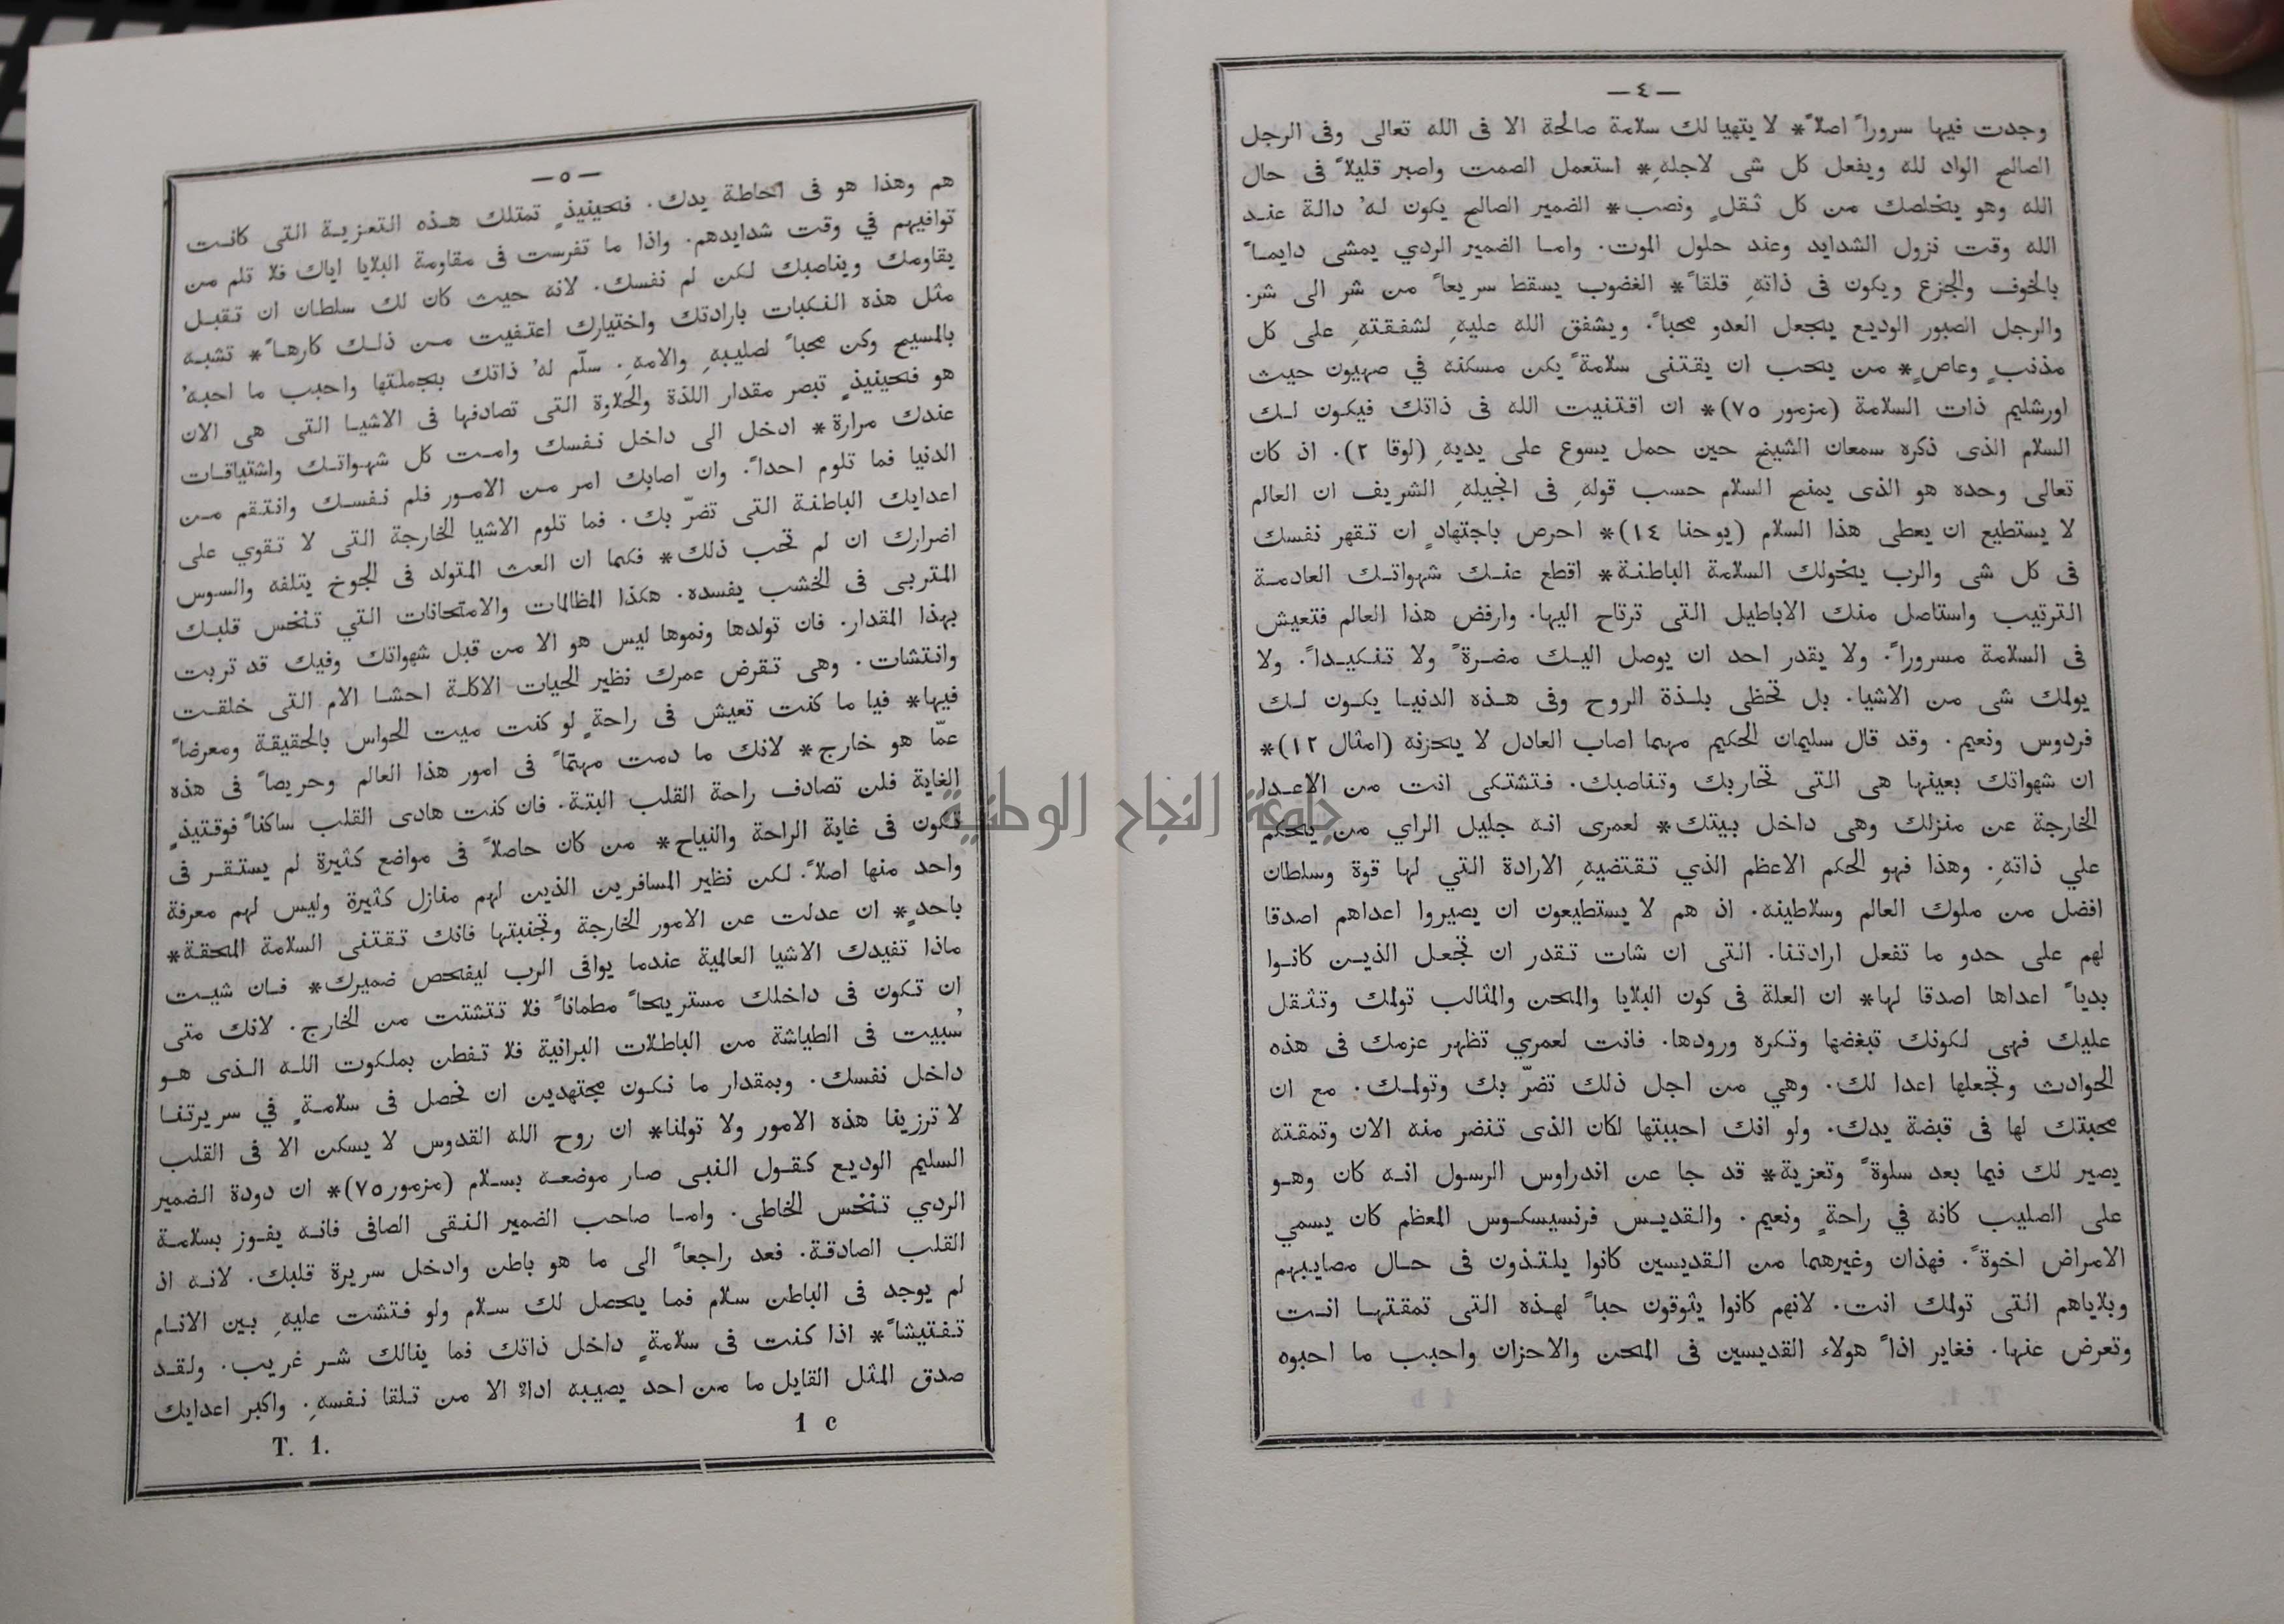 — ٤ —
وجدت فيها سروراً اصلاً* لا يتهيا لك سلامة صالحة الا فى الله تعالى وفى الرجل
الصالح الواد لله ويفعل كل شى لاجلهِ* استعمل الصمت واصبر قليلاً فى حال
الله وهو يخلصك من كل ثقلٍ ونصب* الضمير الصالح يكون لهُ دالة عند
الله وقت نزول الشدايد وعند حلول الموت. واما الضمير الردي يمشى دايماً
بالخوف والجزع ويكون فى ذاتهِ قلقاً* الغضوب يسقط سريعاً من شر الى شر.
والرجل الصبور الوديع يجعل العدو محباً. ويشفق الله عليهِ لشفقتهِ على كل
مذنبٍ وعاصٍ* من يحب ان يقتنى سلامةً يكن مسكنه في صهيون حيث
اورشليم ذات السلامة (مزمور ٧٥)* ان اقتنيت الله فى ذاتك فيكون لك
السلام الذى ذكره سمعان الشيخ حين حمل يسوع على يديهِ (لوقا ٢). اذ كان
تعالى وحده هو الذى يمنح السلام حسب قولهِ فى انجيلهِ الشريف ان العالم
لا يستطيع ان يعطى هذا السلام (يوحنا ١٤)* احرص باجتهادٍ ان تقهر نفسك
فى كل شى والرب يخولك السلامة الباطنة* اقطع عنك شهواتك العادمة
الترتيب واستاصل منك الاباطيل التى ترتاح اليها. وارفض هذا العالم فتعيش
فى السلامة مسروراً. ولا يقدر احد ان يوصل اليك مضرةً ولا تنكيداً. ولا
يولمك شى من الاشيا. بل تحظى بلذة الروح وفى هذه الدنيا يكون لك
فردوس ونعيم. وقد قال سليمان الحكيم مهما اصاب العادل لا يحزنه (امثال ١٢)*
ان شهواتك بعينها هى التى تحاربك وتناصبك. فتشتكى انت من الاعدا
الخارجة عن منزلك وهى داخل بيتك* لعمرى انه جليل الراي من يحكم
علي ذاتهِ. وهذا فهو الحكم الاعظم الذي تقتضيهِ الارادة التي لها قوة وسلطان
افضل من ملوك العالم وسلاطينه. اذ هم لا يستطيعون ان يصيروا اعداهم اصدقا
لهم على حدو ما تفعل ارادتنا. التى ان شات تقدر ان تجعل الذين كانوا
بدياً اعداها اصدقا لها* ان العلة فى كون البلايا والمحن والمثالب تولمك وتثقل
عليك فهى لكونك تبغضها وتكره ورودها. فانت لعمري تظهر عزمك فى هذه
الحوادث وتجعلها اعدا لك. وهي من اجل ذلك تضرّ بك وتولمك. مع ان
محبتك لها فى قبضة يدك. ولو انك احببتها لكان الذى تنضر منه الان وتمقته
يصير لك فيما بعد سلوةً وتعزية* قد جا عن اندراوس الرسول انه كان وهو
على الصليب كانه في راحةٍ ونعيم. والقديس فرنسيسكوس المعظم كان يسمي
الامراض اخوةً. فهذان وغيرهما من القديسين كانوا يلتذون فى حال مصايبهم
وبلاياهم التى تولمك انت. لانهم كانوا يثوقون حباً لهذه التى تمقتها انت
وتعرض عنها. فغاير اذاً هولاء القديسين فى المحن والاحزان واحبب ما احبوه
— ٥ —
هم وهذا هو فى احاطة يدك. فحينيذٍ تمتلك هذه التعزية التى كانت
توافيهم في وقت شدايدهم. واذا ما تفرست فى مقاومة البلايا اياك فلا تلم من
يقاومك ويناصبك لكن لم نفسك. لانه حيث كان لك سلطان ان تقبل
مثل هذه النكبات بارادتك واختيارك اعتفيت من ذلك كارهاً* تشبه
بالمسيح وكن محباً لصليبهِ والامهِ. سلّم لهُ ذاتك بجملتها واحبب ما احبهُ
هو فحينيذٍ تبصر مقدار اللذة والحلاوة التى تصادفها فى الاشيا التى هى الان
عندك مرارة* ادخل الى داخل نفسك وامت كل شهواتك واشتياقات
الدنيا فما تلوم احداً. وان اصابك امر من الامور فلم نفسك وانتقم من
اعدايك الباطنة التى تضرّ بك. فما تلوم الاشيا الخارجة التى لا تقوي على
اضرارك ان لم تحب ذلك* فكما ان العث المتولد فى الجوخ يتلفه والسوس
المتربى فى الخشب يفسده. هكذا المظالمات والامتحانات التي تنخس قلبك
بهذا المقدار. فان تولدها ونموها ليس هو الا من قبل شهواتك وفيك قد تربت
وانتشات. وهى تقرض عمرك نظير الحيات الاكلة احشا الام التى خلقت
فيها* فيا ما كنت تعيش فى راحةٍ لو كنت ميت الحواس بالحقيقة ومعرضاً
عمّا هو خارج* لانك ما دمت مهتماً فى امور هذا العالم وحريصاً فى هذه
الغاية فلن تصادف راحة القلب البتة. فان كنت هادى القلب ساكناً فوقتيذٍ
تكون فى غاية الراحة والنياح* من كان حاصلاً فى مواضع كثيرة لم يستقر فى
واحد منها اصلاً. لكن نظير المسافرين الذين لهم منازل كثيرة وليس لهم معرفة
باحدٍ* ان عدلت عن الامور الخارجة وتجنبتها فانك تقتنى السلامة المحقة*
ماذا تفيدك الاشيا العالمية عندما يوافى الرب ليفحص ضميرك* فان شيت
ان تكون فى داخلك مستريحاً مطماناً فلا تتشتت من الخارج. لانك متى
سُبيت فى الطياشة من الباطلات البرانية فلا تفطن بملكوت الله الذى هو
داخل نفسك. وبمقدار ما نكون مجتهدين ان نحصل فى سلامةٍ في سريرتنا
لا ترزينا هذه الامور ولا تولمنا* ان روح الله القدوس لا يسكن الا فى القلب
السليم الوديع كقول النبى صار موضعه بسلام (مزمور ٧٥)* ان دودة الضمير
الردي تنخس الخاطى. واما صاحب الضمير النقى الصافى فانه يفوز بسلامة
القلب الصادقة. فعد راجعاً الى ما هو باطن وادخل سريرة قلبك. لانه اذ
لم يوجد فى الباطن سلام فما يحصل لك سلام ولو فتشت عليهِ بين الانام
تفتيشاً* اذا كنت فى سلامةٍ داخل ذاتك فما ينالك شر غريب. ولقد
صدق المثل القايل ما من احد يصيبه اداء الا من تلقا نفسهِ. واكبر اعدايك
T. 1. 1 c
جامعة النجاح الوطنية